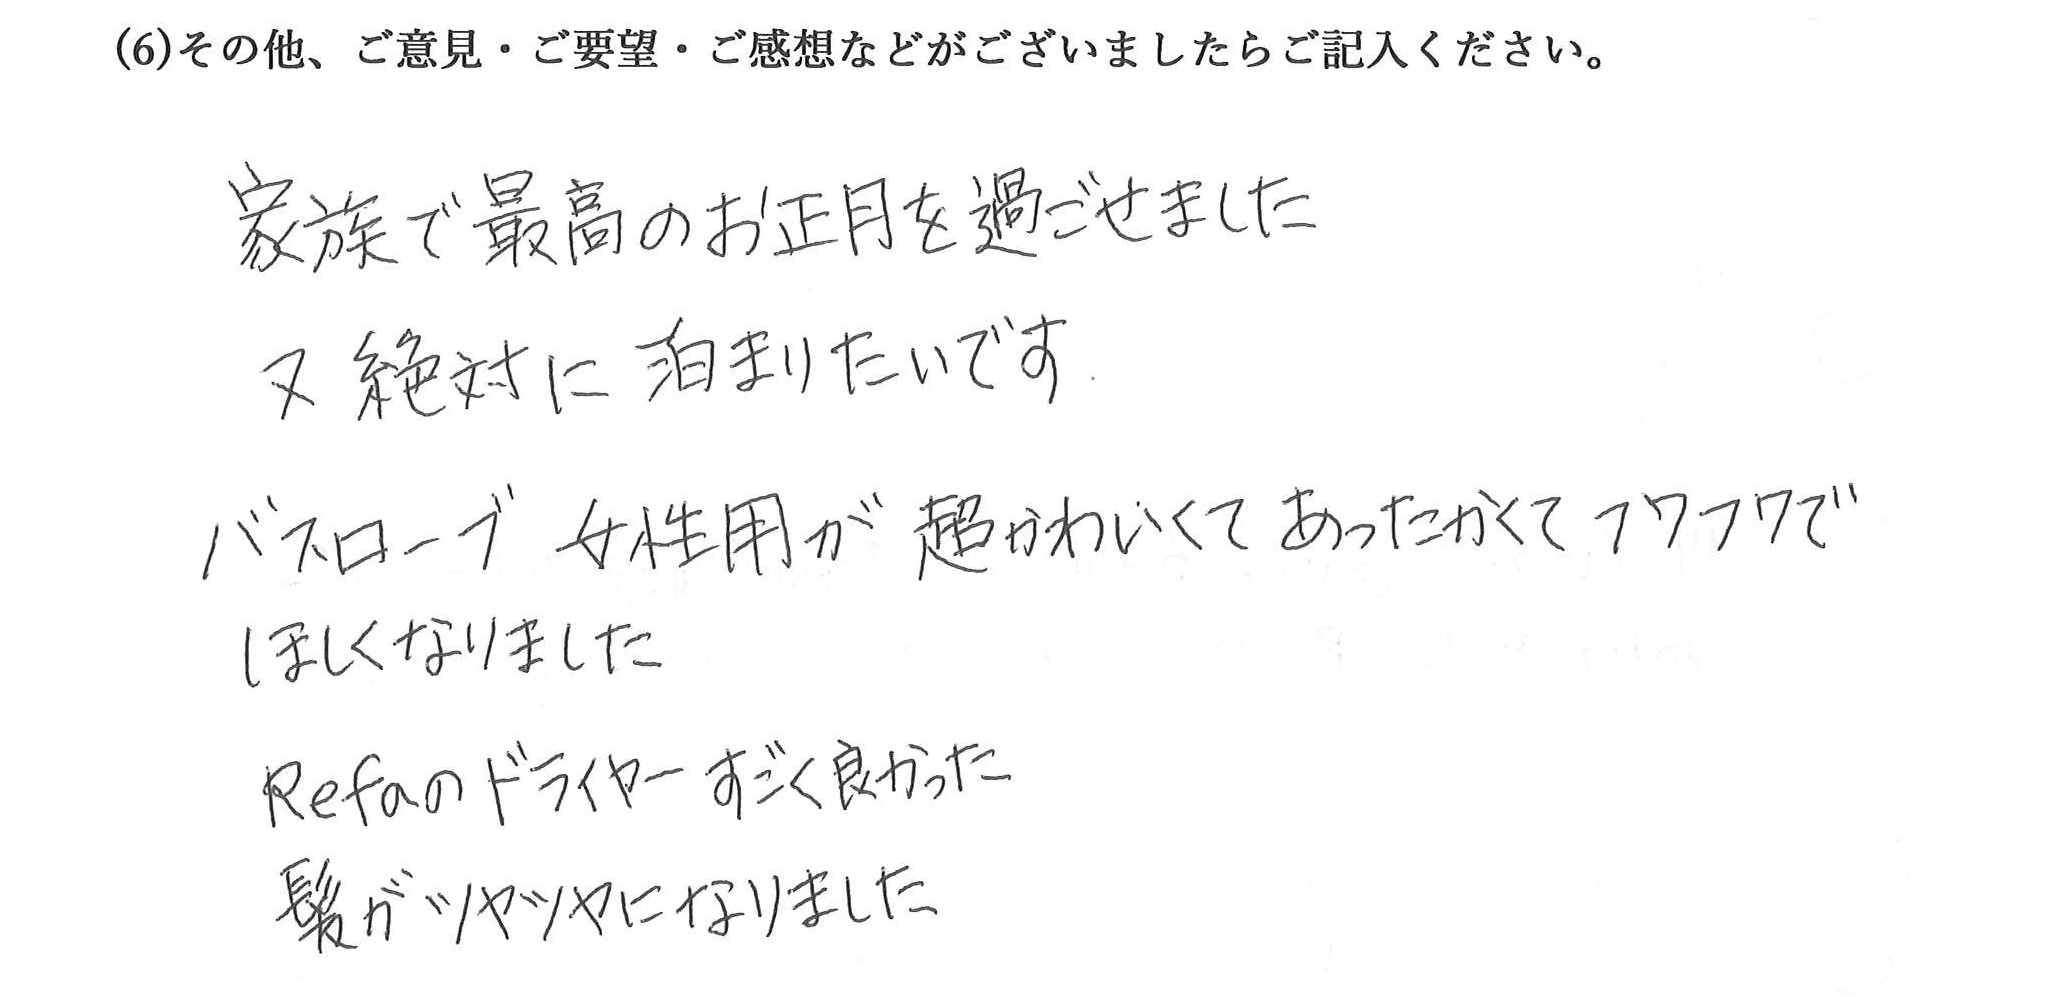 (6)その他、ご意見・ご要望・ご感想などがございましたらご記入ください。
家族で最高のお正月を過ごせました
又絶対に泊まりたいです
バスローブ 女性用が 超かわいくて あったかくて フワフワで
ほしくなりました
Refaのドライヤーすごく良かった
髪がツヤツヤになりました